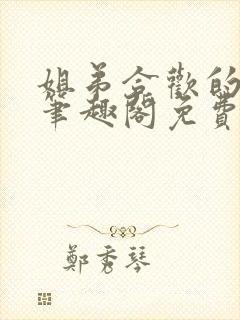 姐弟合歡的
筆趣閣免費
鄭秀琴